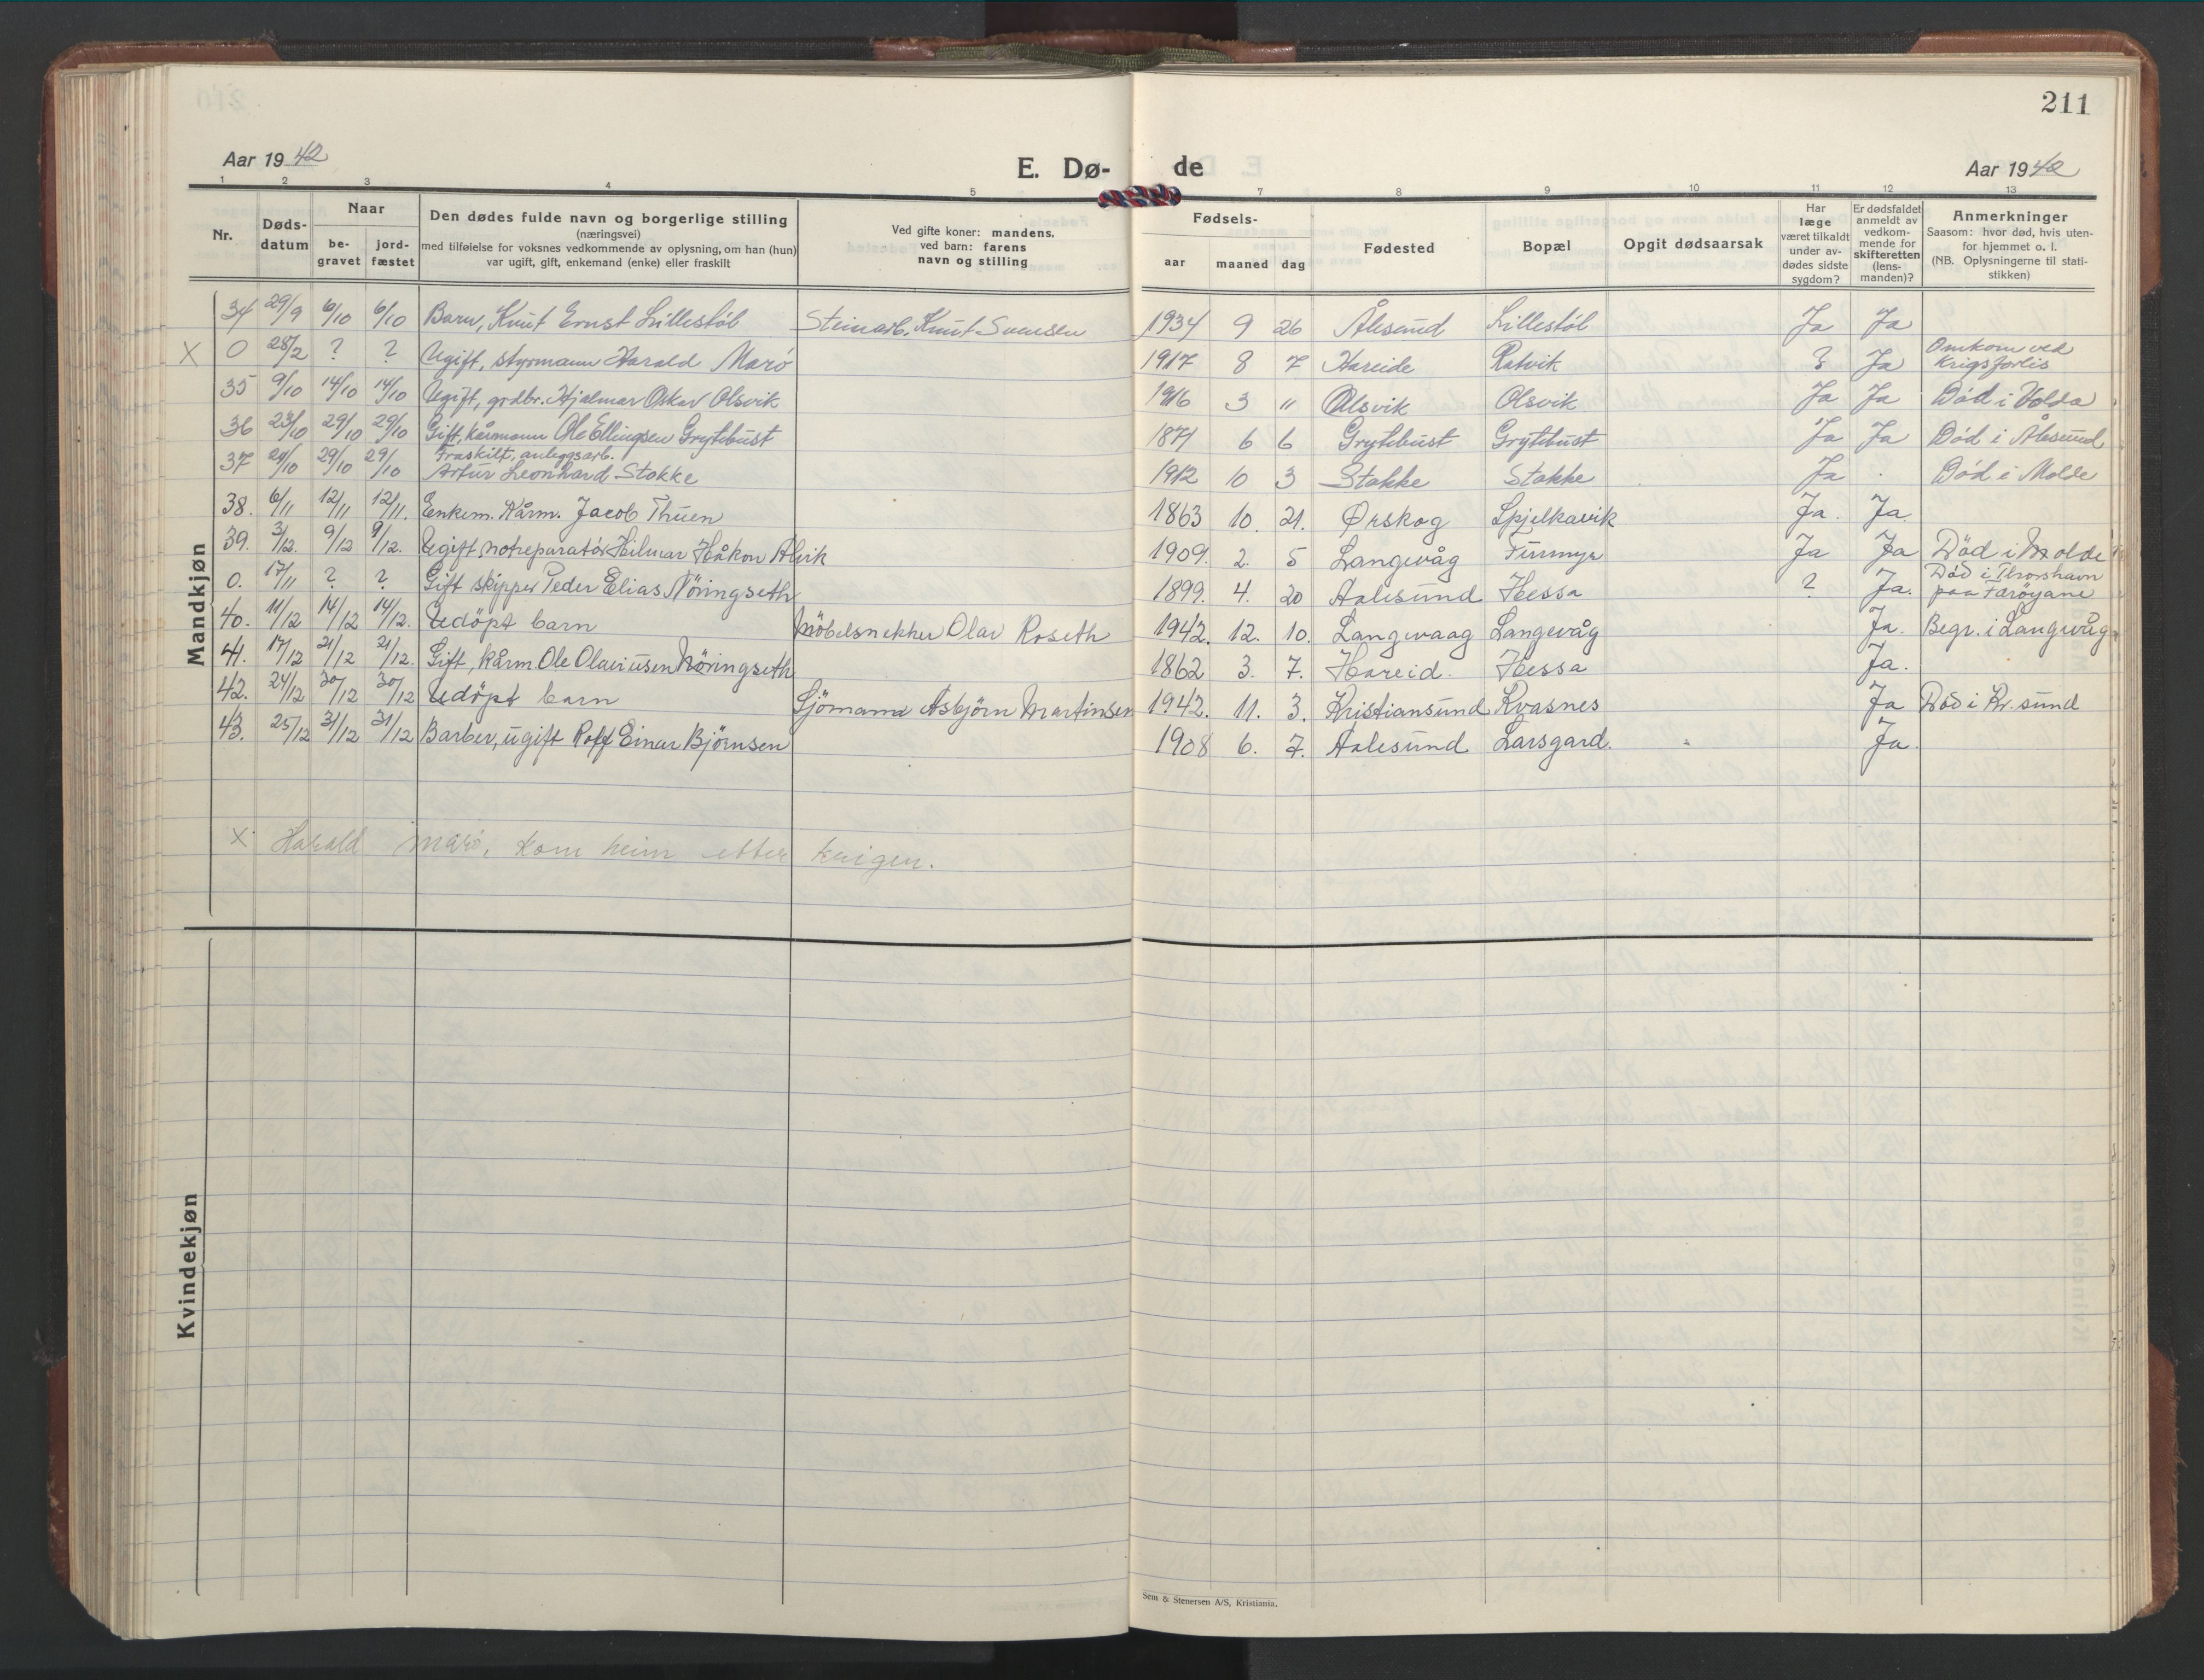 211
Aar 1942
E. Dø-
de
Aar 1942
1 2 3 4 5 7 8 9 10 11 12 13
Nr.
Døds-
datum
Naar
be-
gravet
jord-
fæstet
Den dødes fulde navn og borgerlige stilling
(næringsvei)
med tilføielse for voksnes vedkommende av oplysning, om han (hun)
var ugift, gift, enkemand (enke) eller fraskilt
Ved gifte koner: mandens,
ved barn: farens
navn og stilling
Fødsels-
aar maaned dag
Fødested
Bopæl
Opgit dødsaarsak
Har
læge
været tilkaldt
under av-
dødes sidste
sygdom?
Er dødsfaldet
anmeldt av
vedkom-
mende for
skifteretten
(lens-
manden)?
Anmerkninger
Saasom: hvor død, hvis uten-
for hjemmet o. l.
(NB. Oplysningerne til stati-
stikken)
Mandkjøn
34 29/9 6/10 6/10 Barn, Knut Ernst Lillestöl Steinarb. Knut Svensen 1934 9 26 Ålesund Lillestöl Ja Ja
X 0 28/2 ? ? Ugift, styrmann Harald Marö 1917 8 7 Hareide Ratvik ? Ja Omkom ved
Krigsforlis
35 9/10 14/10 14/10 Ugift, grdbr. Hjalmar Oskar Olsvik 1916 3 " Olsvik Olsvik Ja Ja Död i Volda
36 23/10 29/10 29/10 Gift, kårmann Ole Ellingsen Grytebust 1871 6 6 Grytebust Grytebust Ja Ja Död i Ålesund
Fraskilt, anleggsarb.
37 29/10 29/10 Artur Leonhard Stokke 1912 10 3 Stokke Stokke Ja Död i Molde
38. 6/11 12/11 12/11. Enkem. Kårm. Jacob Thuen 1863 10. 21. Ørskog Spjelkavik Ja. Ja.
39. 3/12. 9/12 9/12. Ugift notreparatör Hilmar Håkon Alvik 1909. 2. 5 Langevåg Ja Ja Död i Molde
0. 17/11 ? ? Gift skipper Peder Elias Nöringseth 1899. 4. 20 Aalesund Hessa ? Ja. Död i Thorshavn
paa Færöyane
40. 11/12 14/12 14/12. Udöpt barn Möbelsnekker Olav Roseth 1942. 12. 10. Langevaag Langevåg Ja. Begr. i Langevåg
41. 17/12 21/12 21/12. Gift, kårm. Ole Olaviusen Nöringseth 1862 3. 7. Hareid. Hessa Ja.
42. 24/12 30/12 30/12 Udöpt barn Sjömann Asbjörn Martinsen 1942. 11. 3. Kristiansund Kvasnes Ja Död i Kr. sund
43. 25/12 31/12 31/12 Barber, ugift Rolf Einar Björnsen 1908 6. 7. Aalesund Larsgard. Ja.
X Harald Marö, kom heim etter krigen.
Kvindekjøn
Sem & Stenersen A/S, Kristiania.